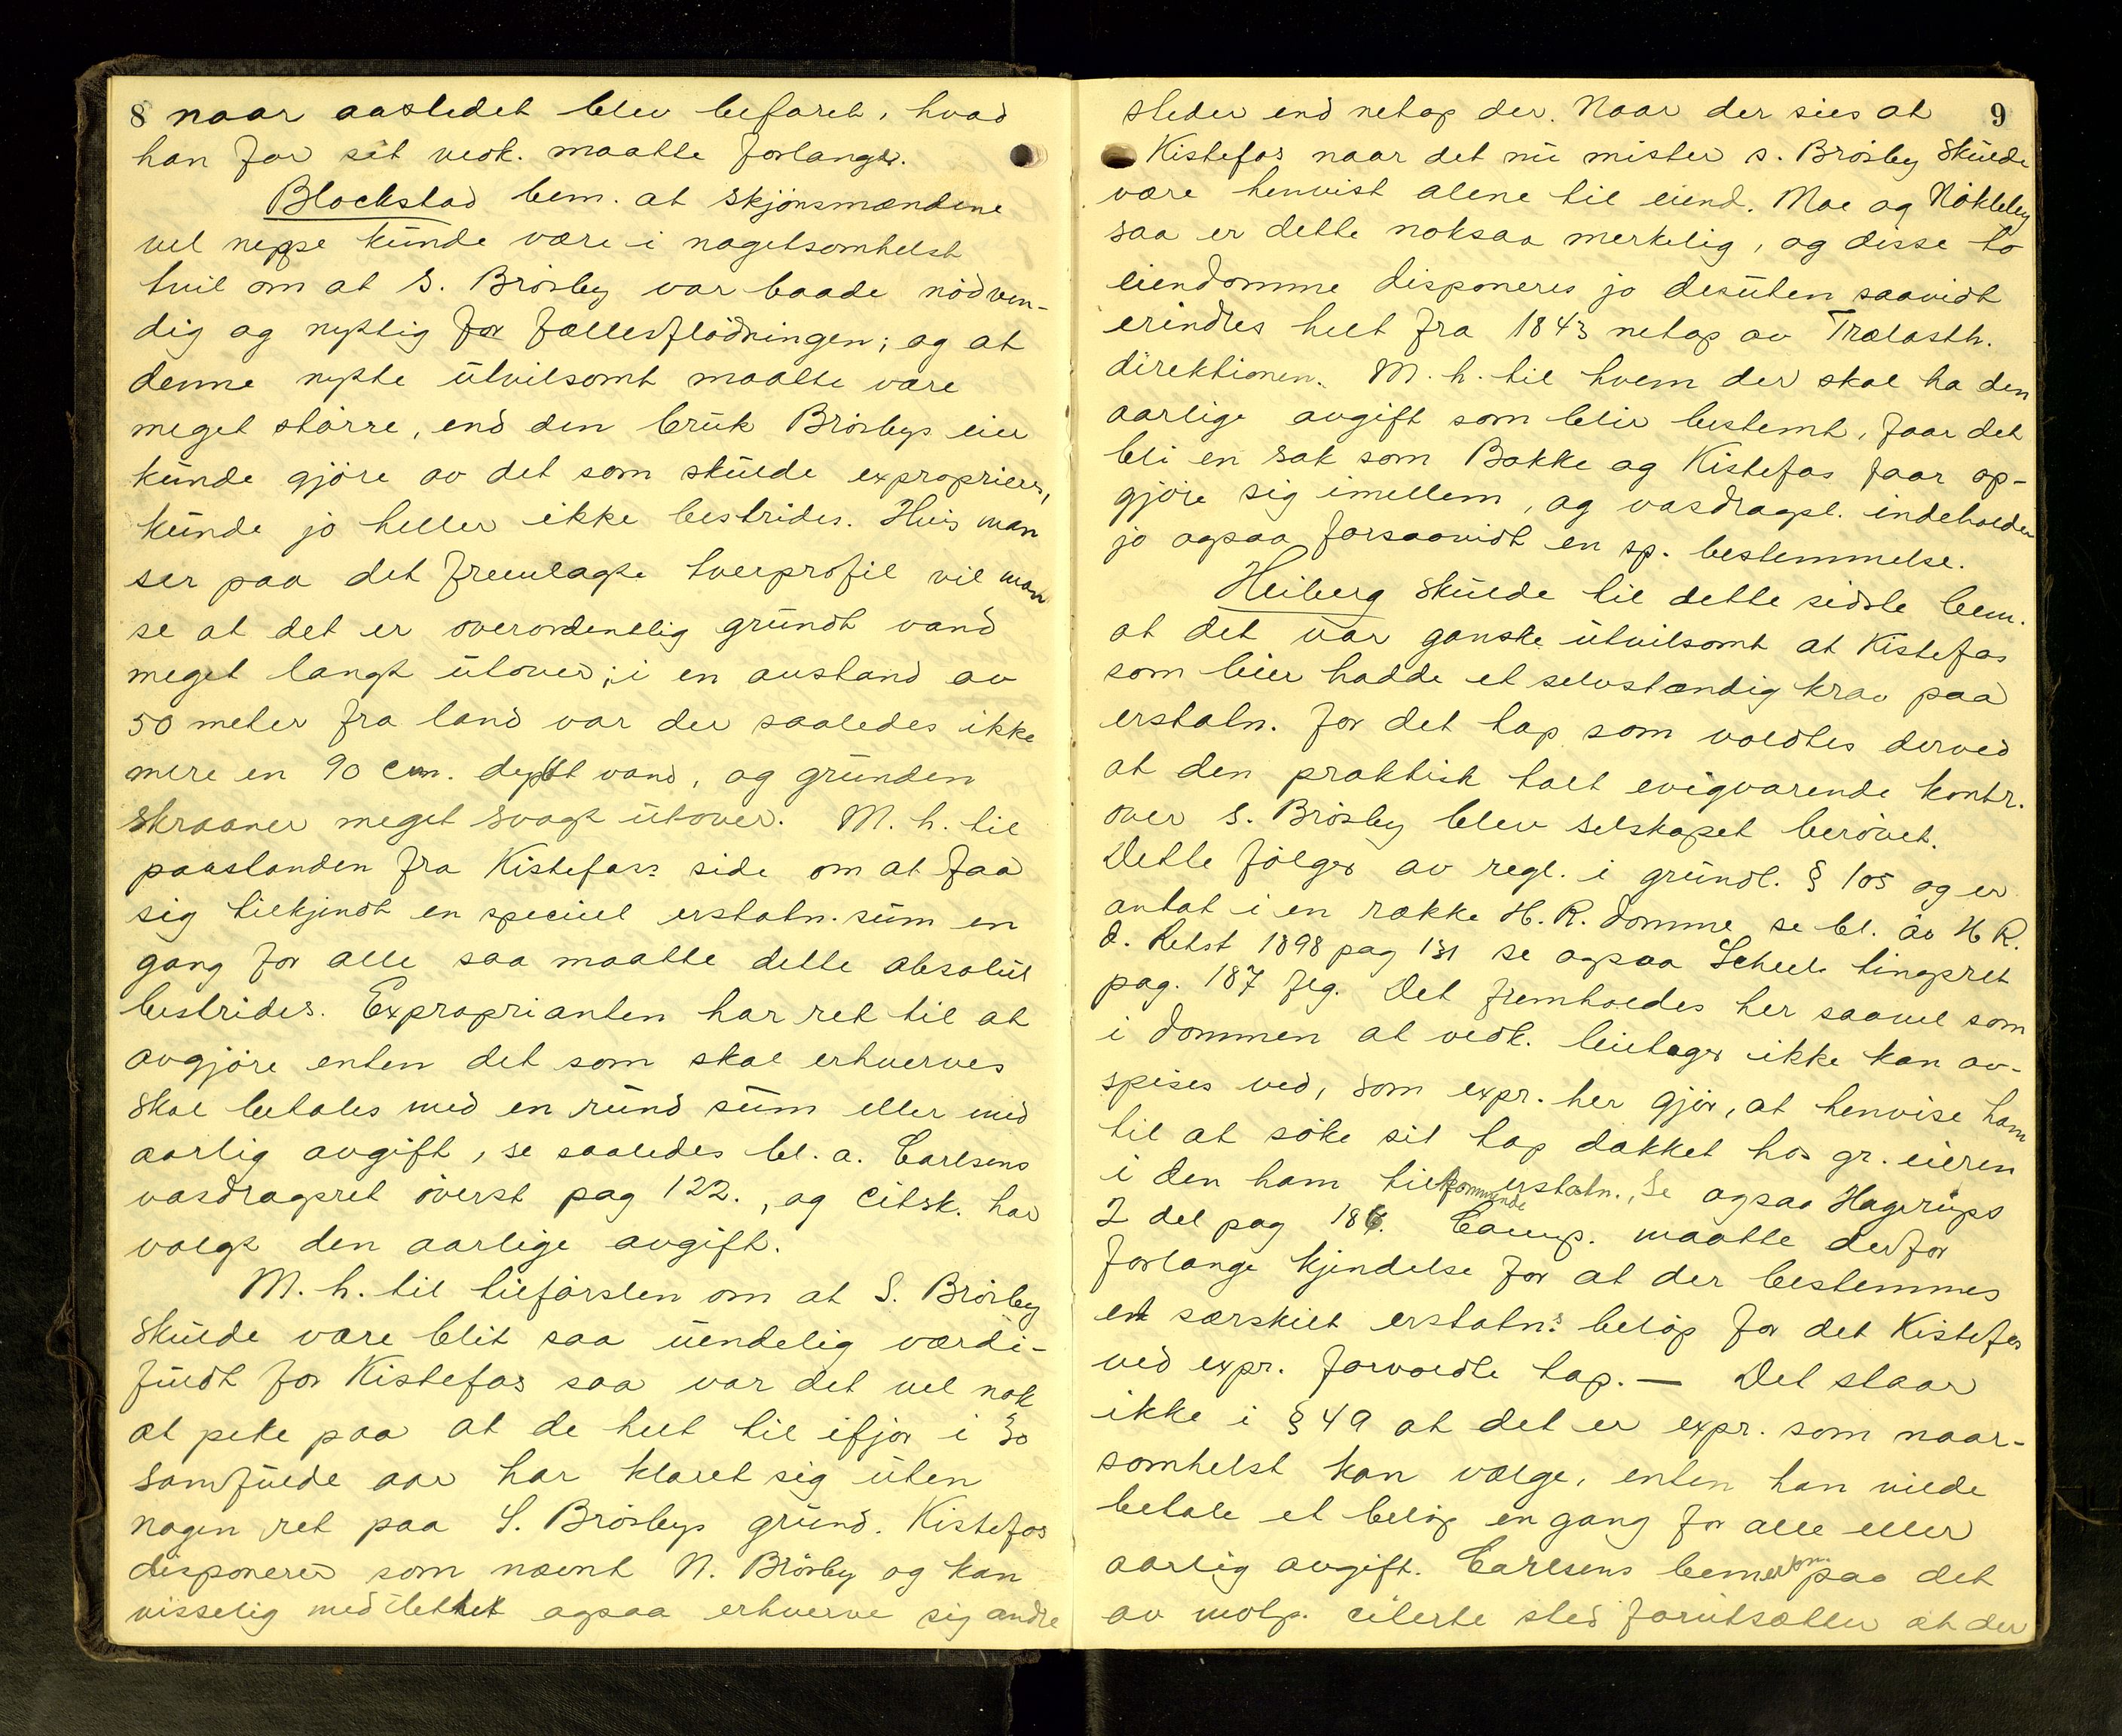 8 naar aastedet blev befaret, hvad
han for sit vedk. maatte forlange.
Blockstad bem. at skjönsmændene
vel neppe kunde være i nogetsomhelst
tvil om at S. Brörby var baade nödven-
dig og nyttig for fællesflödningen; og at
denne nytte utvilsomt maatte være
meget större, end den bruk Brörbys eier
kunde gjöre av det som skulde exproprieres,
kunde jo heller ikke bestrides. Hvis man
ser paa det fremlagte tverprofil vil man
se at det er overordentlig grundt vand
meget langt utover; i en avstand av
50 meter fra land var der saaledes ikke
mere en 90 cm. dypt vand, og grunden
skraaner meget svagt utover. M. h. til
paastanden fra Kistefos's side om at faa
sig tilkjendt en speciel erstatn. sum en
gang for alle saa maatte dette absolut
bestrides. Exproprianten har ret til at
avgjöre enten det som skal erhverves
skal betales med en rund sum eller med
aarlig avgift, se saaledes bl. a. Carlsens
vasdragsret överst pag 122., og citsk. har
valgt den aarlige avgift.
M. h. til tilförslen om at S. Brörby
skulde være blit saa uendelig værdi-
fuldt for Kistefos saa var det vel nok
at peke paa at de helt til ifjor i 30
samfulde aar har klaret sig uten
nogen ret paa S. Brörbys grund. Kistefos
disponerer som nævnt N. Brörby og kan
visselig med lethet ogsaa erhverve sig andre
steder end netop der. Naar der sies at 9
Kistefos naar det nu mister S. Brörby skulde
være henvist alene til eiend. Moe og Nökleby
saa er dette noksaa merkelig, og disse to
eiendomme disponeres jo desuten saavidt
erindres helt fra 1843 netop av Trælasth.
direktionen. M. h. til hvem der skal ha den
aarlige avgift som blir bestemt, faar det
bli en sak som Bakke og Kistefos faar op-
gjöre sig imellem, og vasdragsl. indeholder
jo ogsaa forsaavidt en sp. bestemmelse.
Heiberg skulde til dette sidste bem.
at det var ganske utvilsomt at Kistefos
som leier hadde et selvstændig krav paa
erstatn. for det tap som voldtes derved
at den praktisk talt evigvarende kontr.
over S. Brörby blev selskapet berövet.
Dette fölger av regl. i grundl. § 105 og er
antat i en række H. R. domme, se bl. a. H R.
d. Retst 1898 pag 131 se ogsaa Scheels tingsret
pag. 187 flg. Det fremholdes her saavel som
i dommen at vedk. leietager ikke kan av-
spises ved, som expr. her gjör, at henvise ham
til at söke sit tap dækket hos gr. eieren
i den ham tilkommende erstatn., Se ogsaa Hagerups
2 del pag 186. Comp. maatte derfor
forlange kjendelse for at der bestemmes
et særskilt erstatn.s belöp for det Kistefos
ved expr. forvoldte tap. — Det staar
ikke i § 49 at det er expr. som naar-
somhelst kan vælge, enten han vilde
betale et belöp en gang for alle eller
aarlig avgift. Carlsens bemerkn. paa det
av motp. citerte sted forutsætter at der